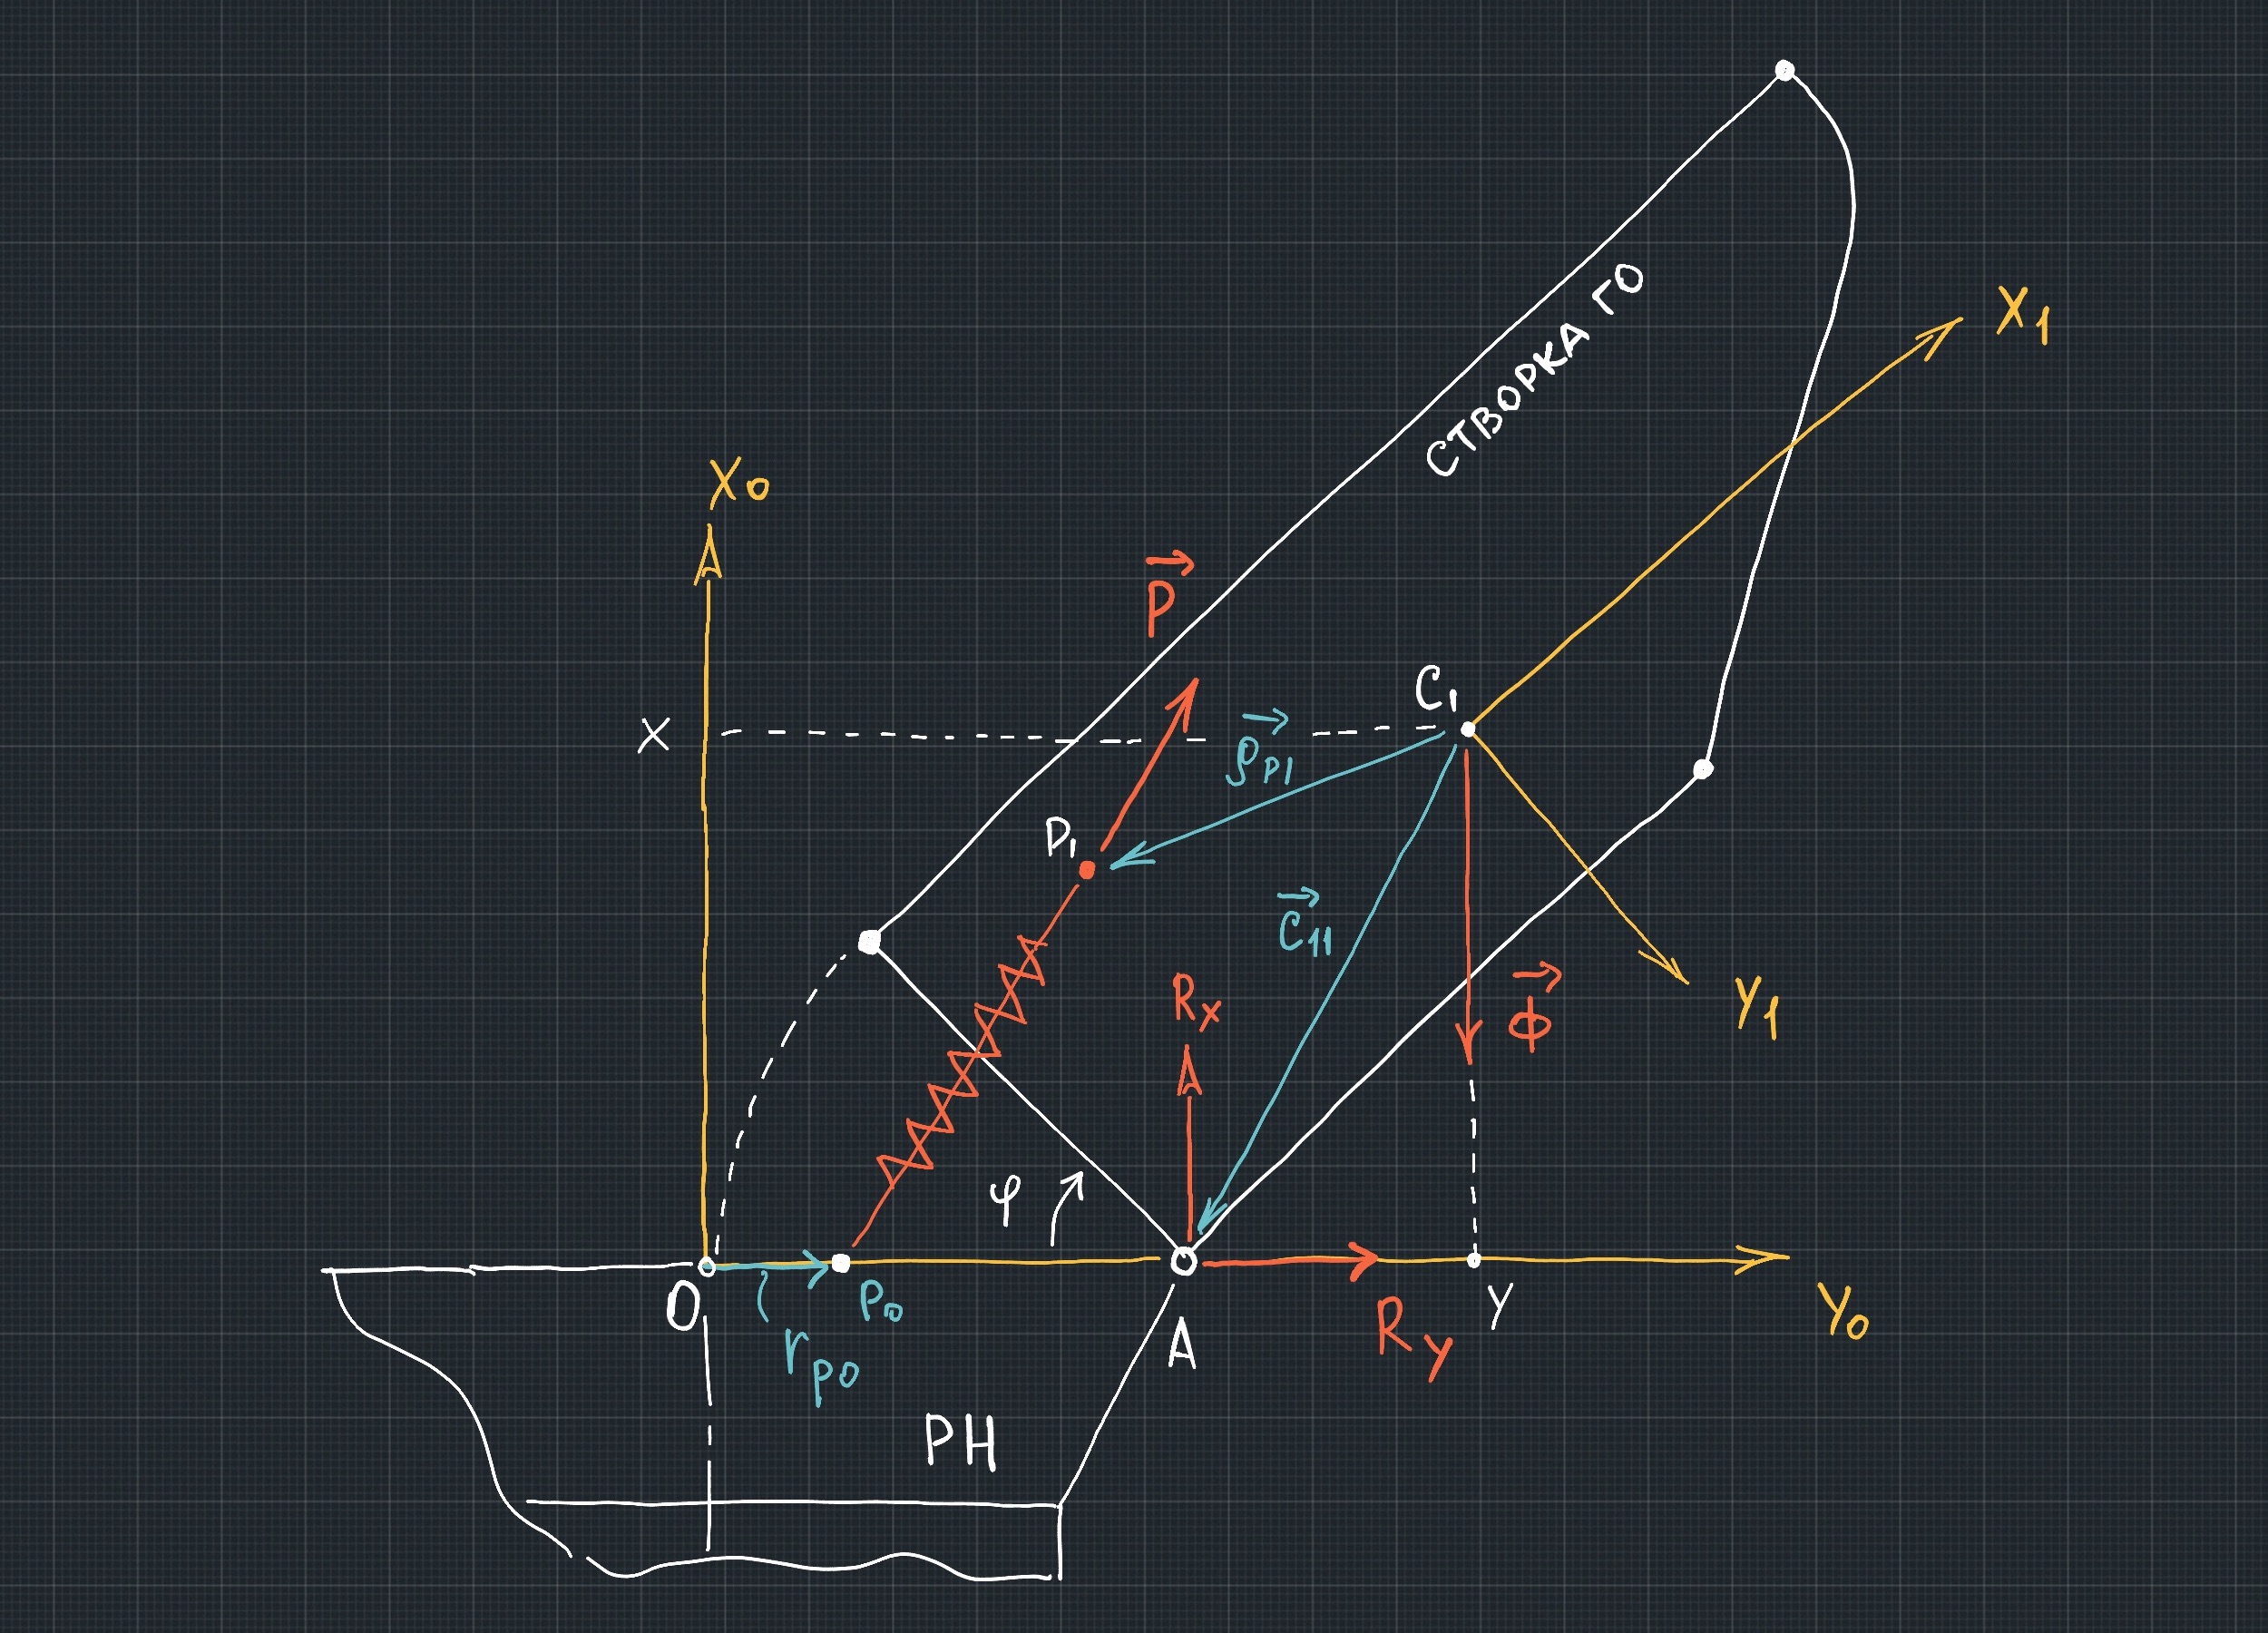 СТВОРКА ГО
X₁
X₀
P
C₁
X
ρₚ₁
P₁
C₁₁
Rₓ
Φ
Y₁
φ
O
P₀
rₚ₀
A
Y
R_y
Y₀
РН